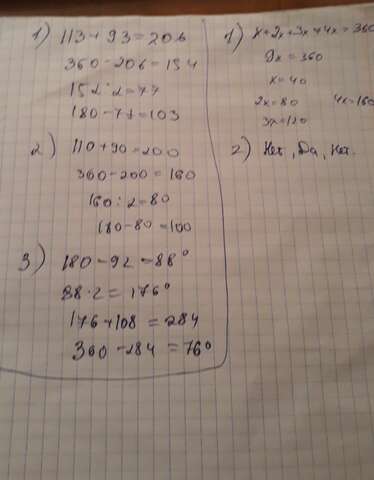 1) 113 + 93 = 206
360 - 206 = 154
154 : 2 = 77
180 - 77 = 103
2) 110 + 90 = 200
360 - 200 = 160
160 : 2 = 80
180 - 80 = 100
3) 180 - 92 = 88°
88 · 2 = 176°
176 + 108 = 284
360 - 284 = 76°
1) x + 2x + 3x + 4x = 360
9x = 360
x = 40
2x = 80 4x = 160
3x = 120
2) Нет, Да, Нет.